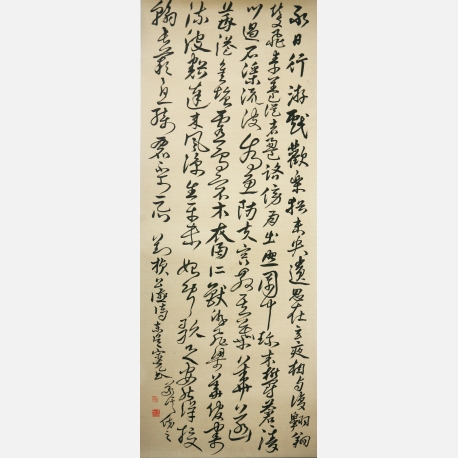 永日行游戲歡樂猶未央遺思在玄夜相與復翱翔
輦車飛素蓋從者盈路傍月出照園中珍木鬱蒼蒼清
川過石渠流波為魚防芙蓉散其華菡
萏溢金塘靈鳥宿水裔仁獸游飛梁華館寄
流波豁達來風涼生平未始聞歌之安能詳投
翰長歎息綺麗不可忘 劉楨公讌詩